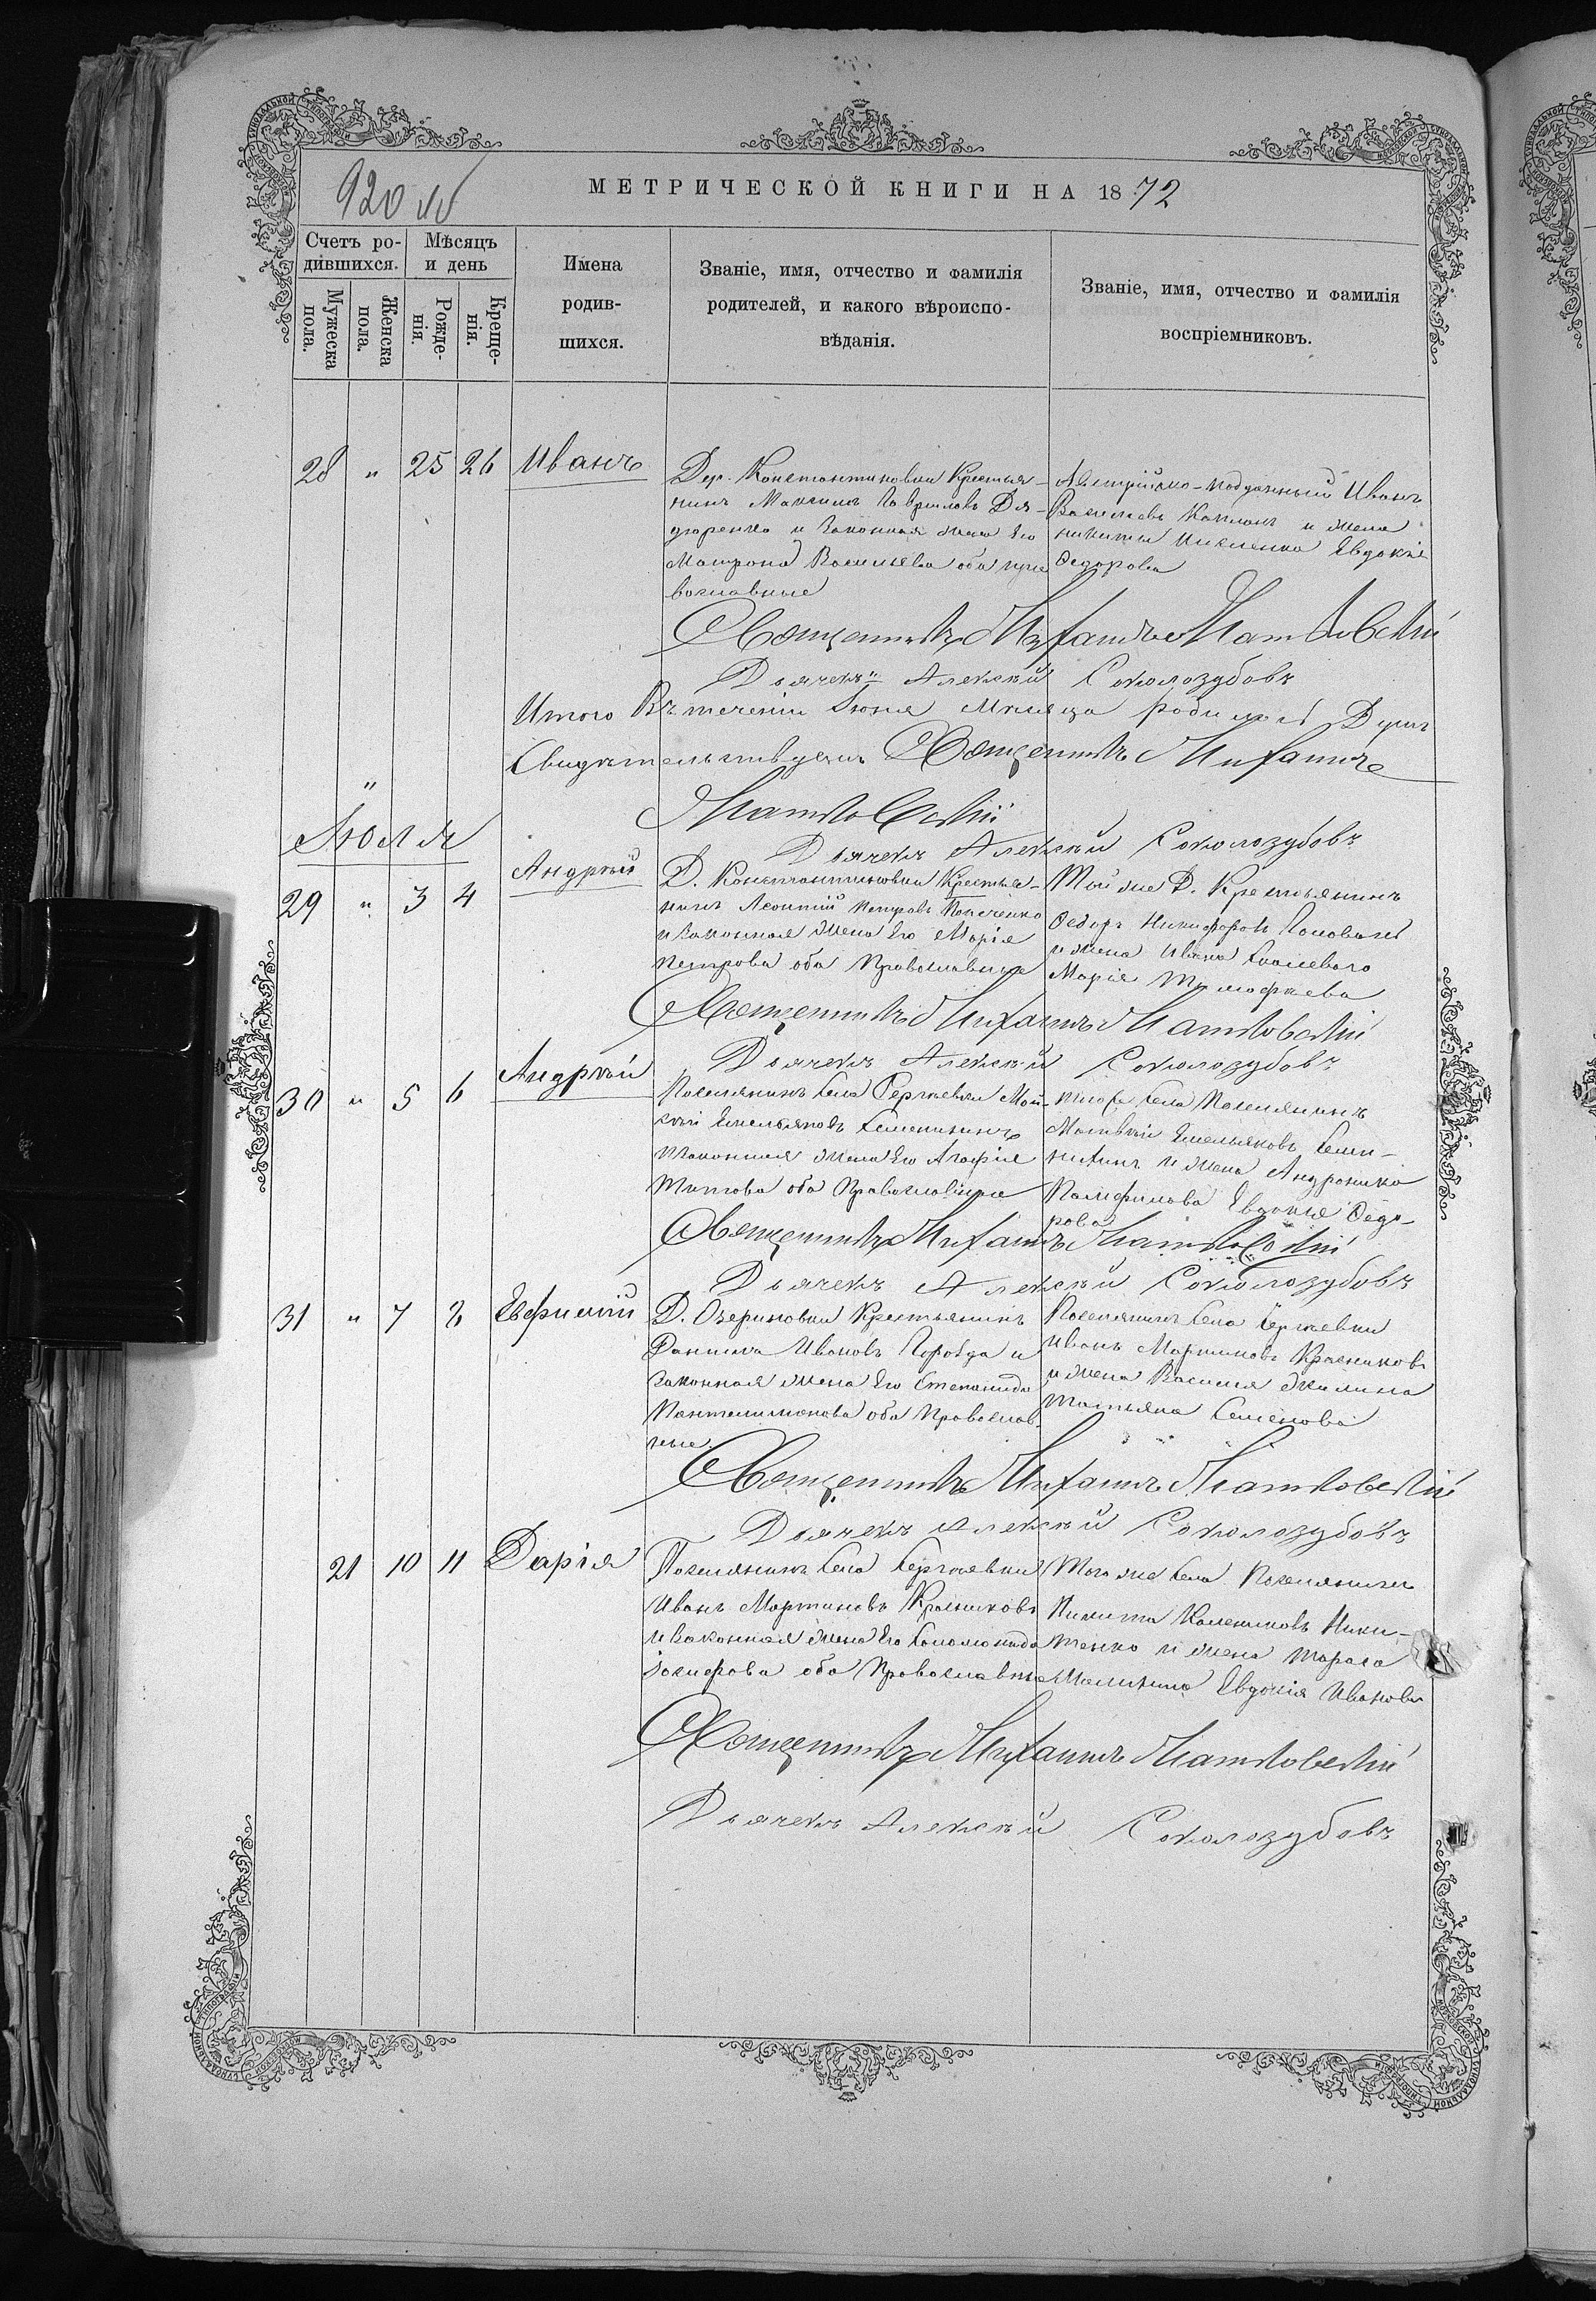 МЕТРИЧЕСКОЙ КНИГИ НА 1872
920
Счетъ родившихся.
Мужеска пола.
Женска пола.
Мѣсяцъ и день
Рожденія.
Крещенія.
Имена родившихся.
Званіе, имя, отчество и фамилія родителей, и какого вѣроисповѣданія.
Званіе, имя, отчество и фамилія воспріемниковъ.
28 " 25 26 Иванъ
Дер. Константиновки Крестья-
нинъ Максимъ Гавриловъ Дя-
дюренко и Законная жена Его
Матрона Васильева оба пра
вославные
Австрійско-подданный Иванъ
Васильевъ Капланъ и жена
Никиты Евдокія
Федорова
Священникъ Михаилъ Матковскій
Дьячекъ Алексѣй Сокологубовъ
Итого Въ теченіи Іюня Мѣсяца родилось Душъ
Свидѣтельствуемъ Священникъ Михаилъ
"
Матковскій
Дьячекъ Алексѣй Сокологубовъ
Іюля
29 " 3 4 Андрей
Д. Константиновки Крестья-
нинъ Леонтій Петровъ
и Законная жена Его Марія
Петрова оба Православные
Той же Д. Крестьянинъ
Федоръ Никифоровъ
и жена Ивана
Марія Тимофѣева
Священникъ Михаилъ Матковскій
Дьячекъ Алексѣй Сокологубовъ
30 " 5 6 Андрѣй
Поселянинъ Села Сергѣевки Мой-
сѣй Емельяновъ Семенихинъ
и законная жена Его Агафія
Титова оба Православные
тогоже Села Поселянинъ
Матвѣй Емельяновъ Семе-
нихинъ и жена Андроника
Памфилова Евдокія Федо-
рова
Священникъ Михаилъ Матковскій
Дьячекъ Алексѣй Сокологубовъ
31 " 7 8 Евфимій
Д. Озериновки Крестьянинъ
Данила Ивановъ и
законная жена Его Степанида
Пантелимонова оба Православ-
ные
Поселянинъ Села Сергѣевки
Иванъ Мартиновъ Красниковъ
и жена Василія
Татьяна Семенова
Священникъ Михаилъ Матковскій
Дьячекъ Алексѣй Сокологубовъ
21 10 11 Дарія
Поселянинъ Села Сергѣевки
Иванъ Мартиновъ Красниковъ
и Законная жена Его Соломонида
Іосифова оба Православные
Того же Села Поселянинъ
Никита Калениковъ Ники-
тенко и жена Тараса
Евдокія Иванова
Священникъ Михаилъ Матковскій
Дьячекъ Алексѣй Сокологубовъ